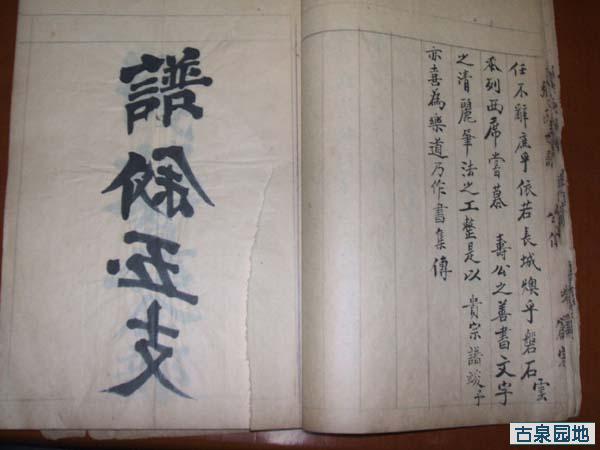 任不辭庶乎依若長城燠乎磐石雲
忝列西席嘗慕 壽公之善書文字
之清麗筆法之工整是以 貴宗譜竣予
亦喜為樂道乃作書集傳
譜五支
古泉园地